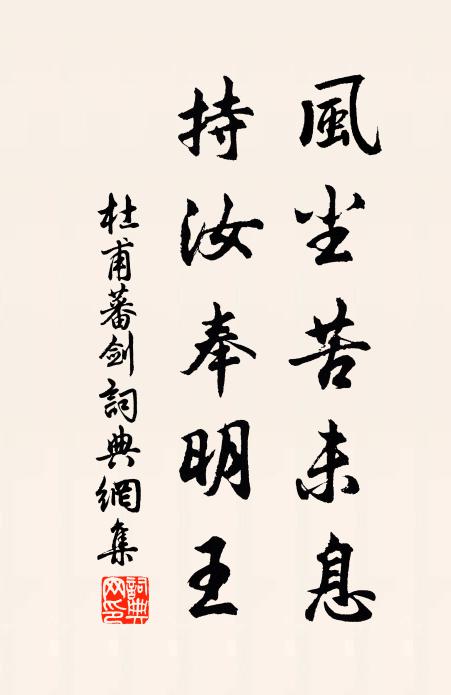 風尘苦未息
持汝奉明王
杜甫蕃剑詞典網集
詞典網印